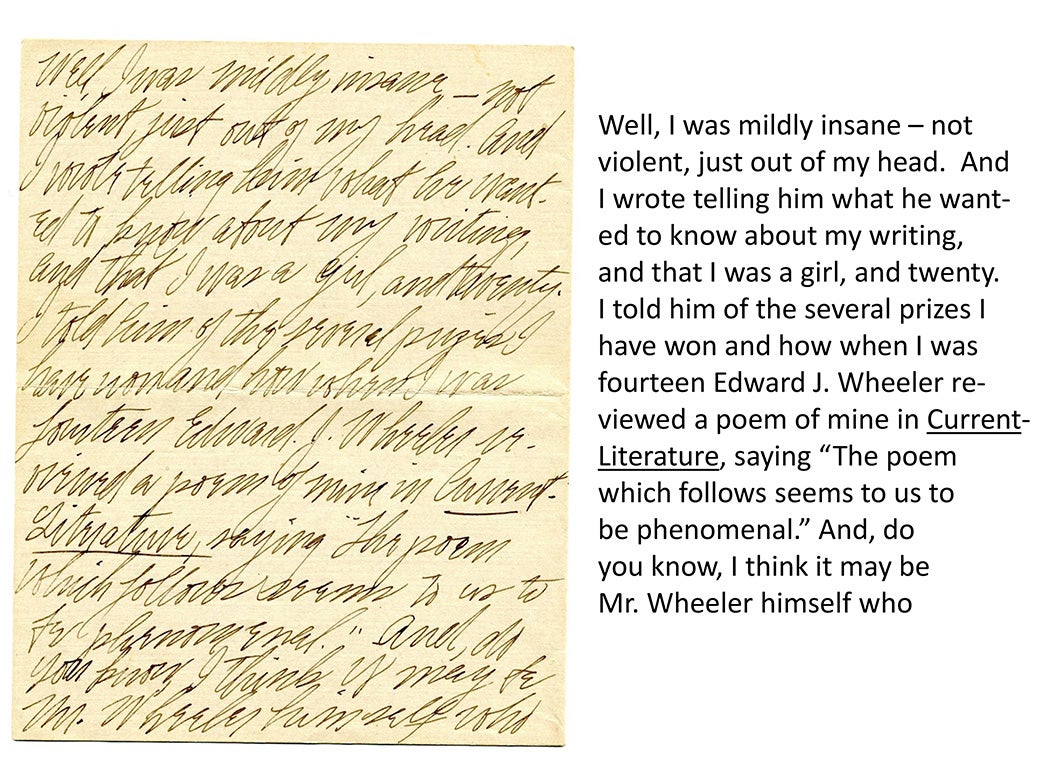 Well, I was mildly insane – not
violent, just out of my head. And
I wrote telling him what he want-
ed to know about my writing,
and that I was a girl, and twenty.
I told him of the several prizes I
have won and how when I was
fourteen Edward J. Wheeler re-
viewed a poem of mine in Current-
Literature, saying "The poem
which follows seems to us to
be phenomenal." And, do
you know, I think it may be
Mr. Wheeler himself who
Well, I was mildly insane – not
violent, just out of my head.  And
I wrote telling him what he want-
ed to know about my writing,
and that I was a girl, and twenty.
I told him of the several prizes I
have won and how when I was
fourteen Edward J. Wheeler re-
viewed a poem of mine in Current-
Literature, saying “The poem
which follows seems to us to
be phenomenal.” And, do
you know, I think it may be
Mr. Wheeler himself who